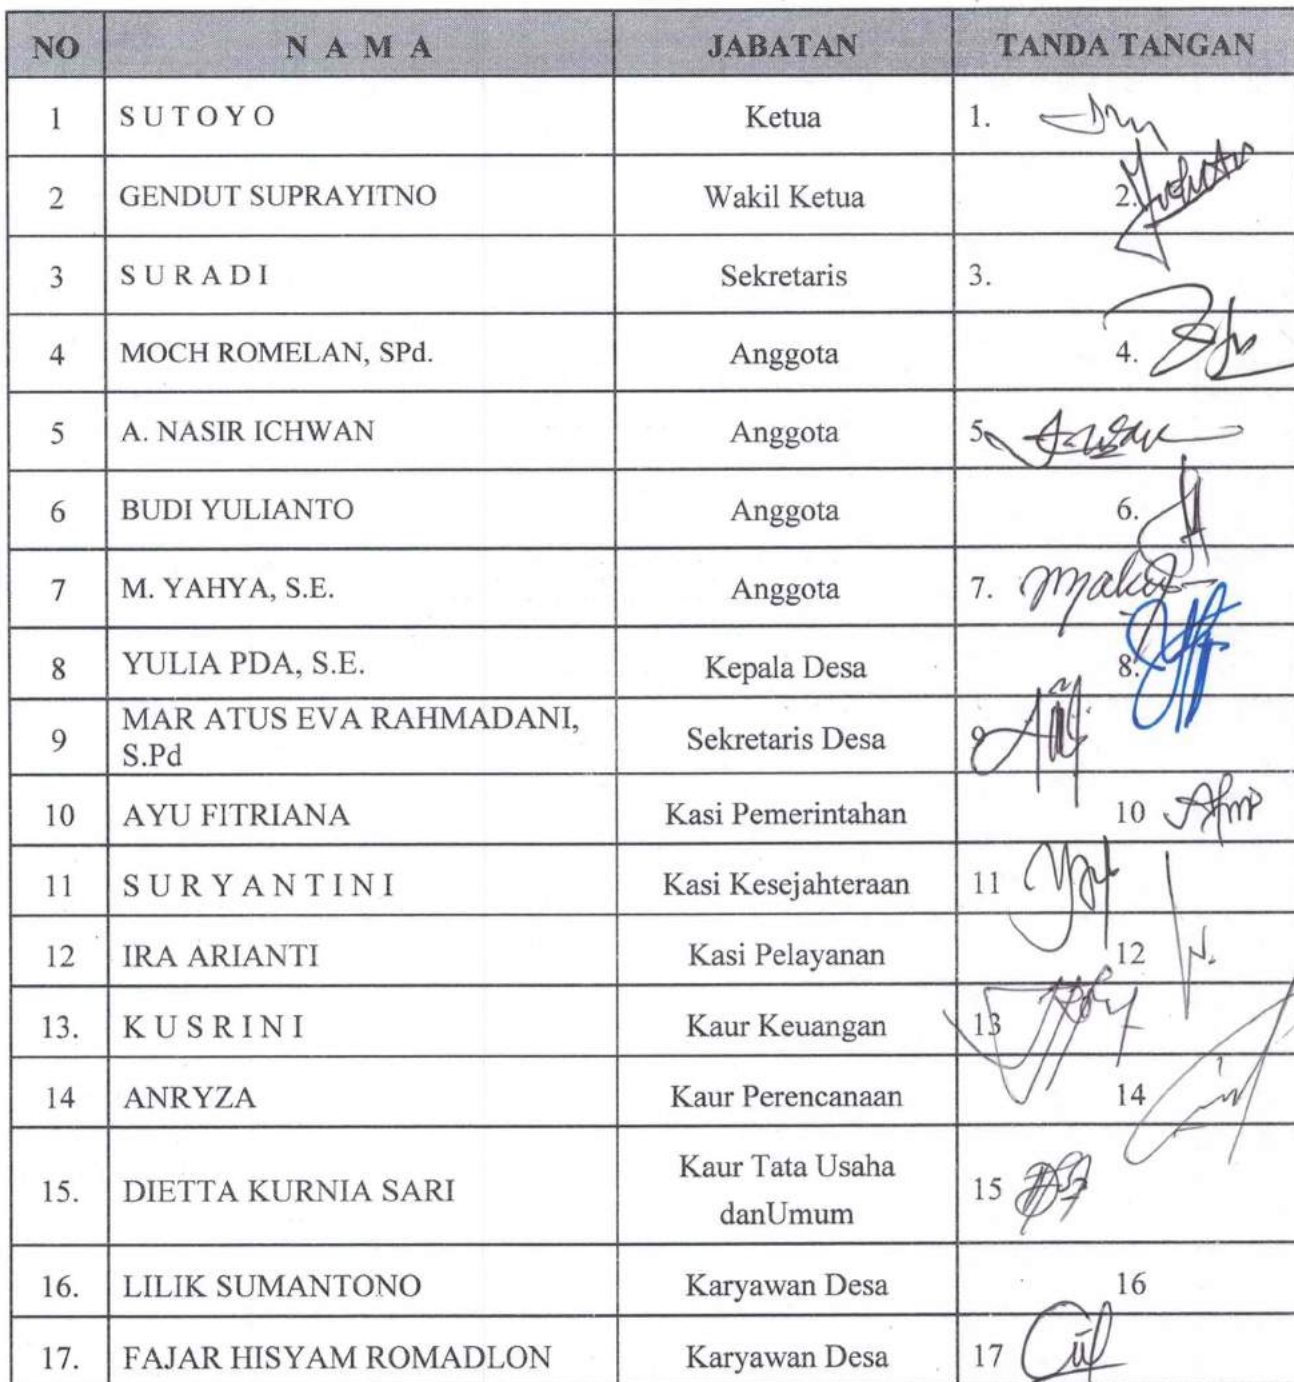 NO N A M A JABATAN TANDA TANGAN
1 S U T O Y O Ketua 1.
2 GENDUT SUPRAYITNO Wakil Ketua 2.
3 S U R A D I Sekretaris 3.
4 MOCH ROMELAN, SPd. Anggota 4.
5 A. NASIR ICHWAN Anggota 5.
6 BUDI YULIANTO Anggota 6.
7 M. YAHYA, S.E. Anggota 7.
8 YULIA PDA, S.E. Kepala Desa 8.
9 MAR ATUS EVA RAHMADANI,
S.Pd Sekretaris Desa 9
10 AYU FITRIANA Kasi Pemerintahan 10
11 S U R Y A N T I N I Kasi Kesejahteraan 11
12 IRA ARIANTI Kasi Pelayanan 12
13. K U S R I N I Kaur Keuangan 13
14 ANRYZA Kaur Perencanaan 14
15. DIETTA KURNIA SARI Kaur Tata Usaha
danUmum 15
16. LILIK SUMANTONO Karyawan Desa 16
17. FAJAR HISYAM ROMADLON Karyawan Desa 17